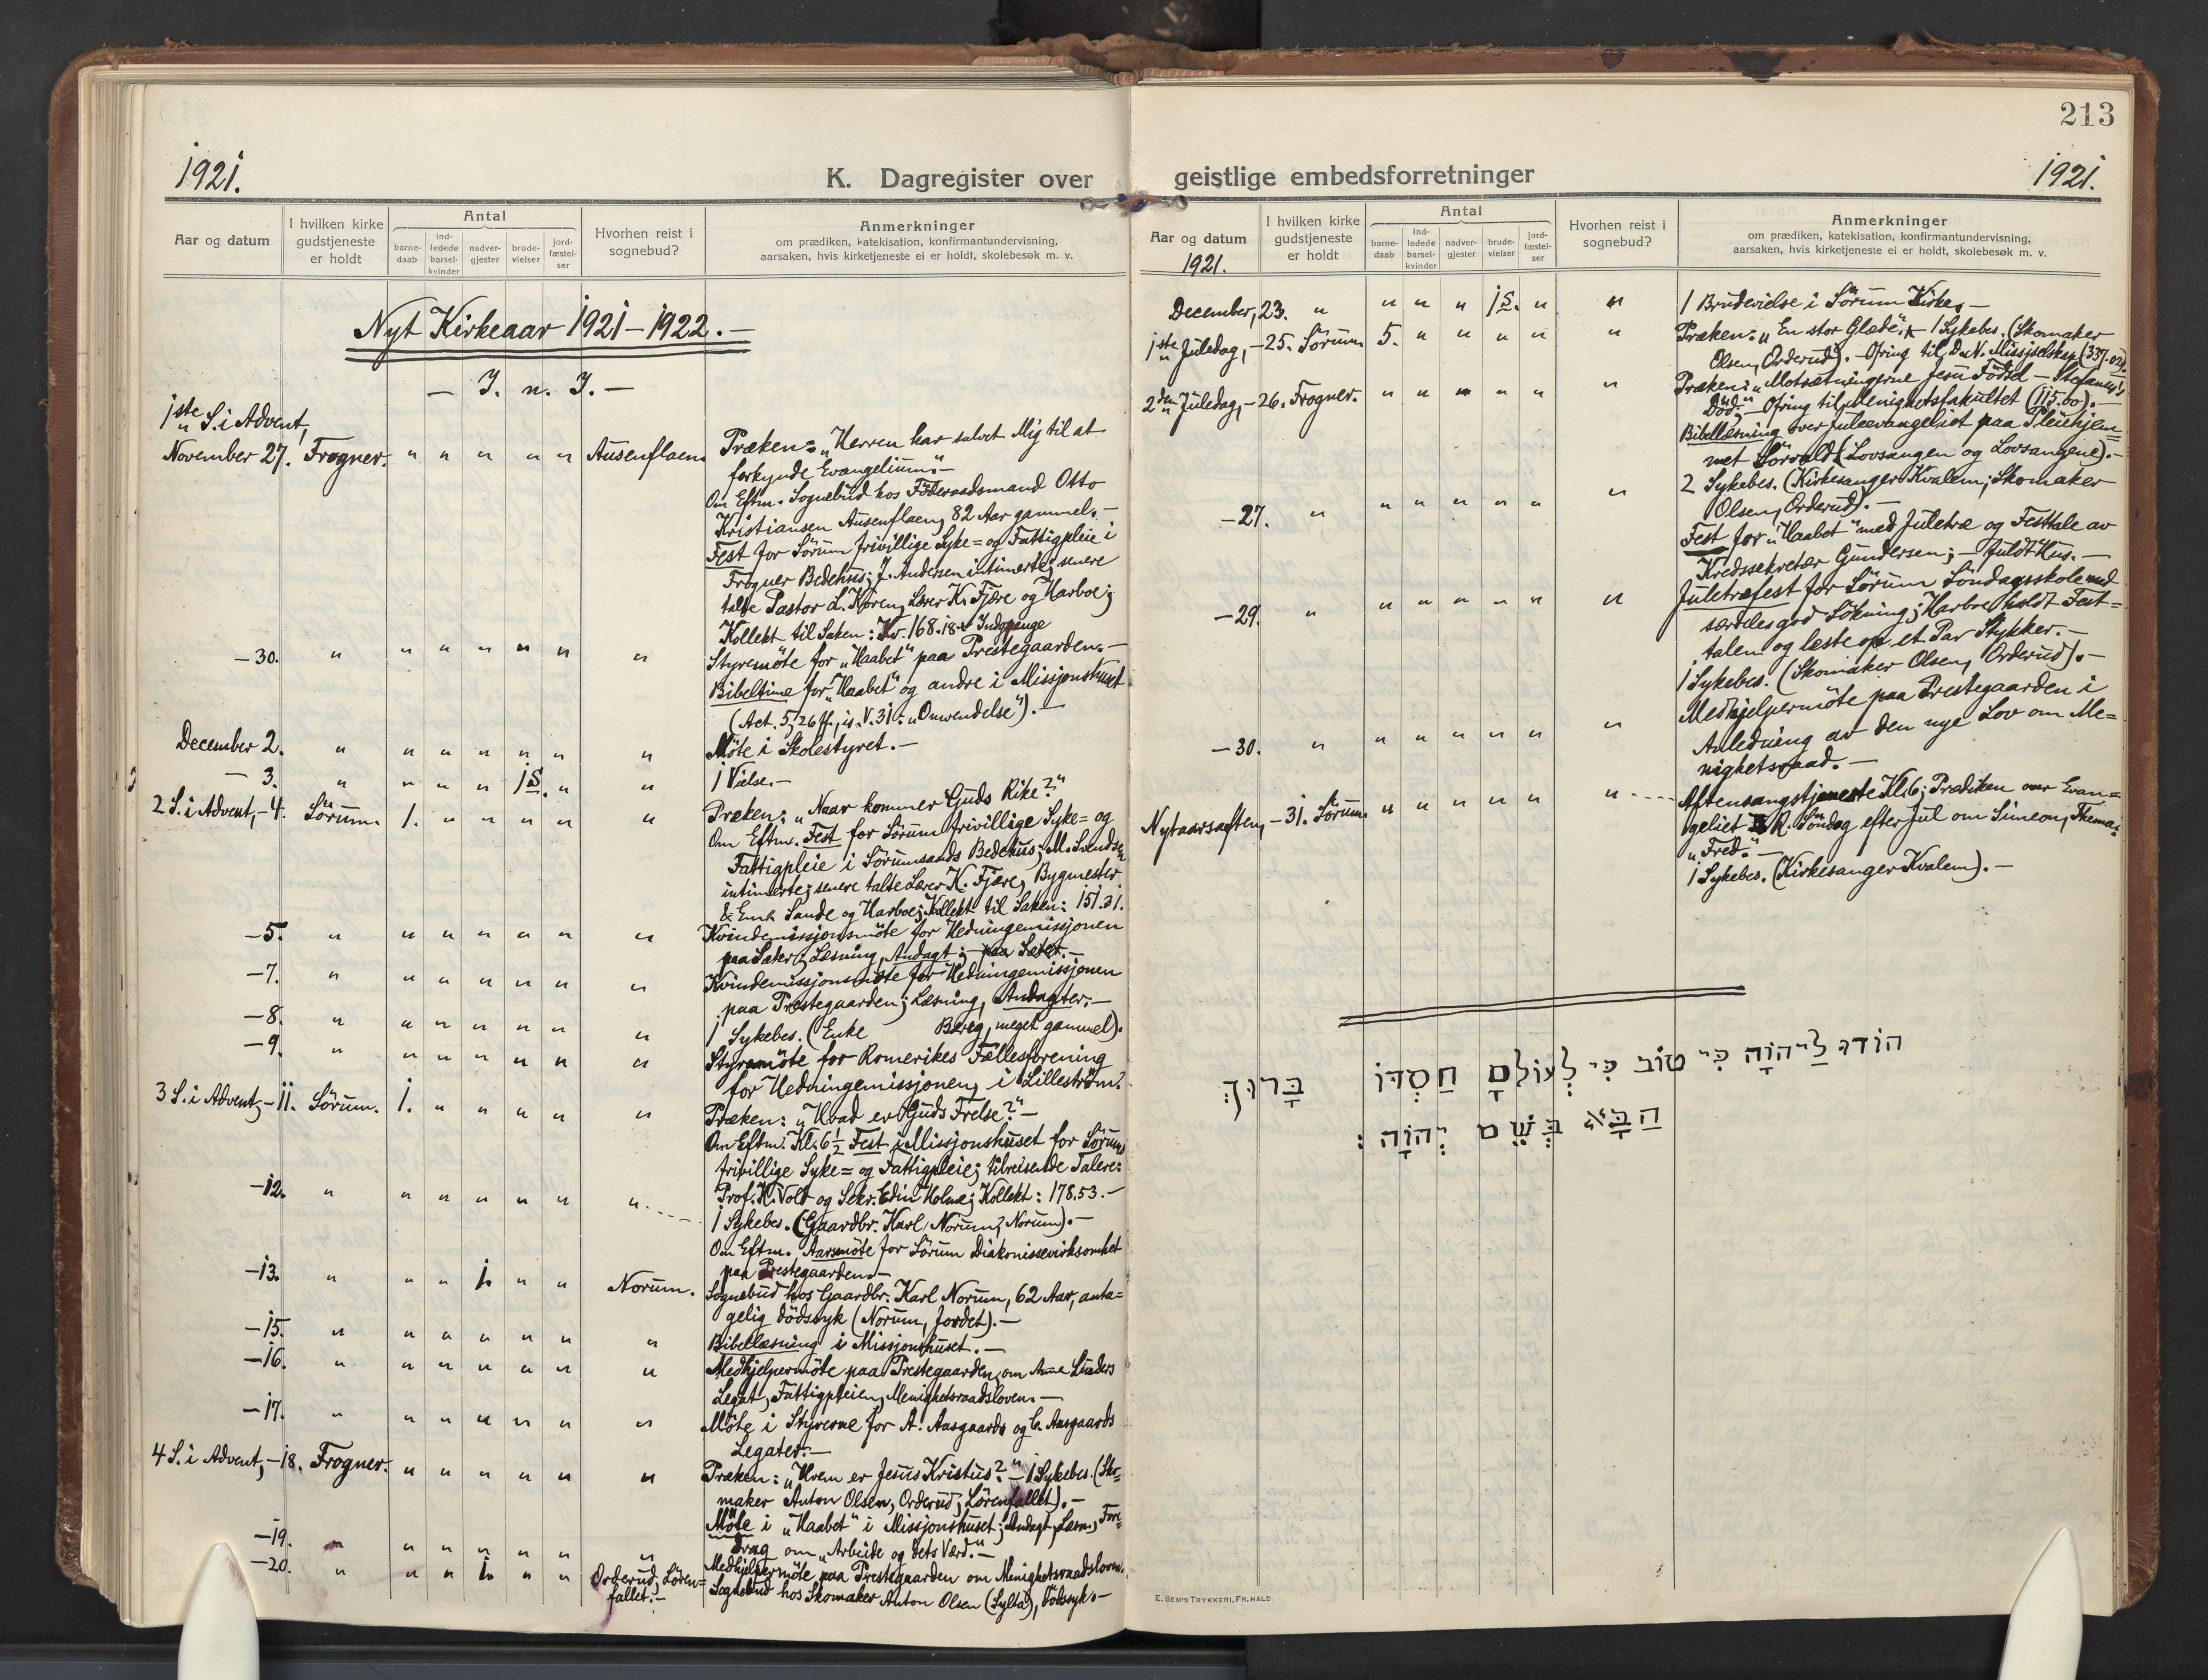 1921.
K. Dagregister over
Aar og datum
I hvilken kirke gudstjeneste er holdt
Antal
barne-daab
ind-ledede barsel-kvinder
nadver-gjester
brude-vielser
jord-fæstel-ser
Hvorhen reist i sognebud?
Anmerkninger
om prædiken, katekisation, konfirmantundervisning,
aarsaken, hvis kirketjeneste ei er holdt, skolebesøk m. v.
Nyt Kirkeaar 1921-1922.-
- I. n. J. -
1ste S. i Advent,
November 27. Frogner. " " " " " Ausenflaen. Præken: "Herren har salvet Mig til at
forkynde Evangelium."-
Om Eftm. Sognebud hos Föderaadsmand Otto
Kristiansen Ausenflaen, 82 Aar gammel.-
Fest for Sörum frivillige Syke= og Fattigpleie i
Frogner Bedehus; J. Andersen intimerte; senere
talte Pastor L. Koren, Lærer K. Fjære og Harboe;
Kollekt til Saken: Kr. 168.18
-30. " " " " " " " Styremöte for "Haabet" paa Prestegaarden.-
Bibeltime for "Haabet" og andre i Missjonshuset
(Act. 5, 26 ff., is. V. 31: "Omvendelse").-
December 2. " " " " " " " Möte i Skolestyret.-
- 3. " " " " 1S. " " 1 Vielse.-
2 S. i Advent,-4. Sörum. 1. " " " " " Præken: "Naar kommer Guds Rike?"
Om Eftm. Fest for Sörum frivillige Syke= og
Fattigpleie i Sörumsands Bedehus; M. Svendsen
intimerte; senere talte Lærer K. Fjære, Bygmester
Sande og Harboe; Kollekt til Saken: 151.21.
-5. " " " " " " " Kvindemissjonsmöte for Hedningemissjonen
paa Sæter; Læsning, Andagt; paa Sæter.-
-7. " " " " " " " Kvindemissjonsmöte for Hedningemissjonen
paa Prestegaarden; Læsning, Andagter.-
-8. " " " " " " " 1 Sykebes. (Enke Berg, meget gammel).
-9. " " " " " " " Styremöte for Romerikes Fællesforening
for Hedningemissjonen, i Lilleström.
3 S. i Advent,-11. Sörum. 1. " " " " " Præken: "Hvad er Guds Frelse?"-
Om Eftm. Kl. 6½ Fest i Missjonshuset for Sörums
frivillige Syke= og Fattigpleie; tilreisende Talere:
Prof. K. Vold og Sekr. Edin Holme; Kollekt: 178.53.-
-12. " " " " " " " 1 Sykebes. (Gaardbr. Karl Norum, Norum).-
Om Eftm. Aarsmöte for Sörum Diakonissevirksomhet
paa Prestegaarden.-
-13. " " " 1. " " Norum. Sognebud hos Gaardbr. Karl Norum, 62 Aar, anta=
gelig dödssyk (Norum, Jordet).-
-15. " " " " " " " Bibellæsning i Missjonshuset.-
-16. " " " " " " " Medhjelpermöte paa Prestegaarden, om Anne Linders
Legat, Fattigpleien, Menighetsraadsloven.-
-17. " " " " " " " Möte i Styrerne for A. Aasgaards og C. Aasgaards
Legater.-
4 S. i Advent,-18. Frogner. " " " " " " Præken: "Hvem er Jesus Kristus?"-1 Sykebes. (Sko=
maker Anton Olsen, Orderud, Lörenfallet).-
-19. " " " " " " " Möte i "Haabet" i Missjonshuset; Andagt, Læsn., Fore=
drag om "Arbeide og dets Værd."-
-20. " " " 1. " " Orderud, Lören=
fallet.- Medhjelpermöte paa Prestegaarden om Menighetsraadsloven.
Sognebud hos Skomaker Anton Olsen (Sylta), dödssyk.-
213
geistlige embedsforretninger
1921.
Aar og datum
1921.
I hvilken kirke gudstjeneste er holdt
Antal
barne-daab
ind-ledede barsel-kvinder
nadver-gjester
brude-vielser
jord-fæstel-ser
Hvorhen reist i sognebud?
Anmerkninger
om prædiken, katekisation, konfirmantundervisning,
aarsaken, hvis kirketjeneste ei er holdt, skolebesøk m. v.
December, 23. " " " " 1S. " " 1 Brudevielse i Sörum Kirke.-
1ste Juledag, -25. Sörum 5. " " " " " Præken: "En stor Glæde". 1 Sykebes. (Skomaker
Olsen, Orderud).-Ofring til D. N. Missjselskap (337.02).
2den Juledag, -26. Frogner. " " " " " " Præken: "Motsætningerne Jesu Födsel - Stefanus's
Död."-Ofring til Menighetsfakultet (115.00).-
Bibellæsning over Juleevangeliet paa Pleiehjem=
met Sörvald (Lovsangen og Lovsangene).-
-27. " " " " " " " 2 Sykebes. (Kirkesanger Kvalem; Skomaker
Olsen, Orderud).-
Fest for "Haabet" med Juletræ og Festtale av
Kredssekretær Gundersen; - fuldt Hus.-
-29. " " " " " " " Juletræfest for Sörum Söndagsskole med
særdeles god Sökning; Harboe holdt Fest=
talen og læste op et Par Stykker.-
1 Sykebes. (Skomaker Olsen, Orderud).-
-30. " " " " " " " Medhjelpermöte paa Prestegaarden i
Anledning av den nye Lov om Me=
nighetsraad.-
Nytaarsaften, -31. Sörum " " " " " " Aftensangstjeneste Kl. 6; Prædiken over Evan=
geliet R. Söndag efter Jul om Simeon, Thema:
"Fred."-
1 Sykebes. (Kirkesanger Kvalem).-
הוֹדוּ לַיהוָֹה כִּי טוֹב כִּי לְעוֹלָם חַסְדּוֹ בָּרוּךְ
הַבָּא בְּשֵׁם יְהוָֹה:
E. SEM'S TRYKKERI, FR.HALD